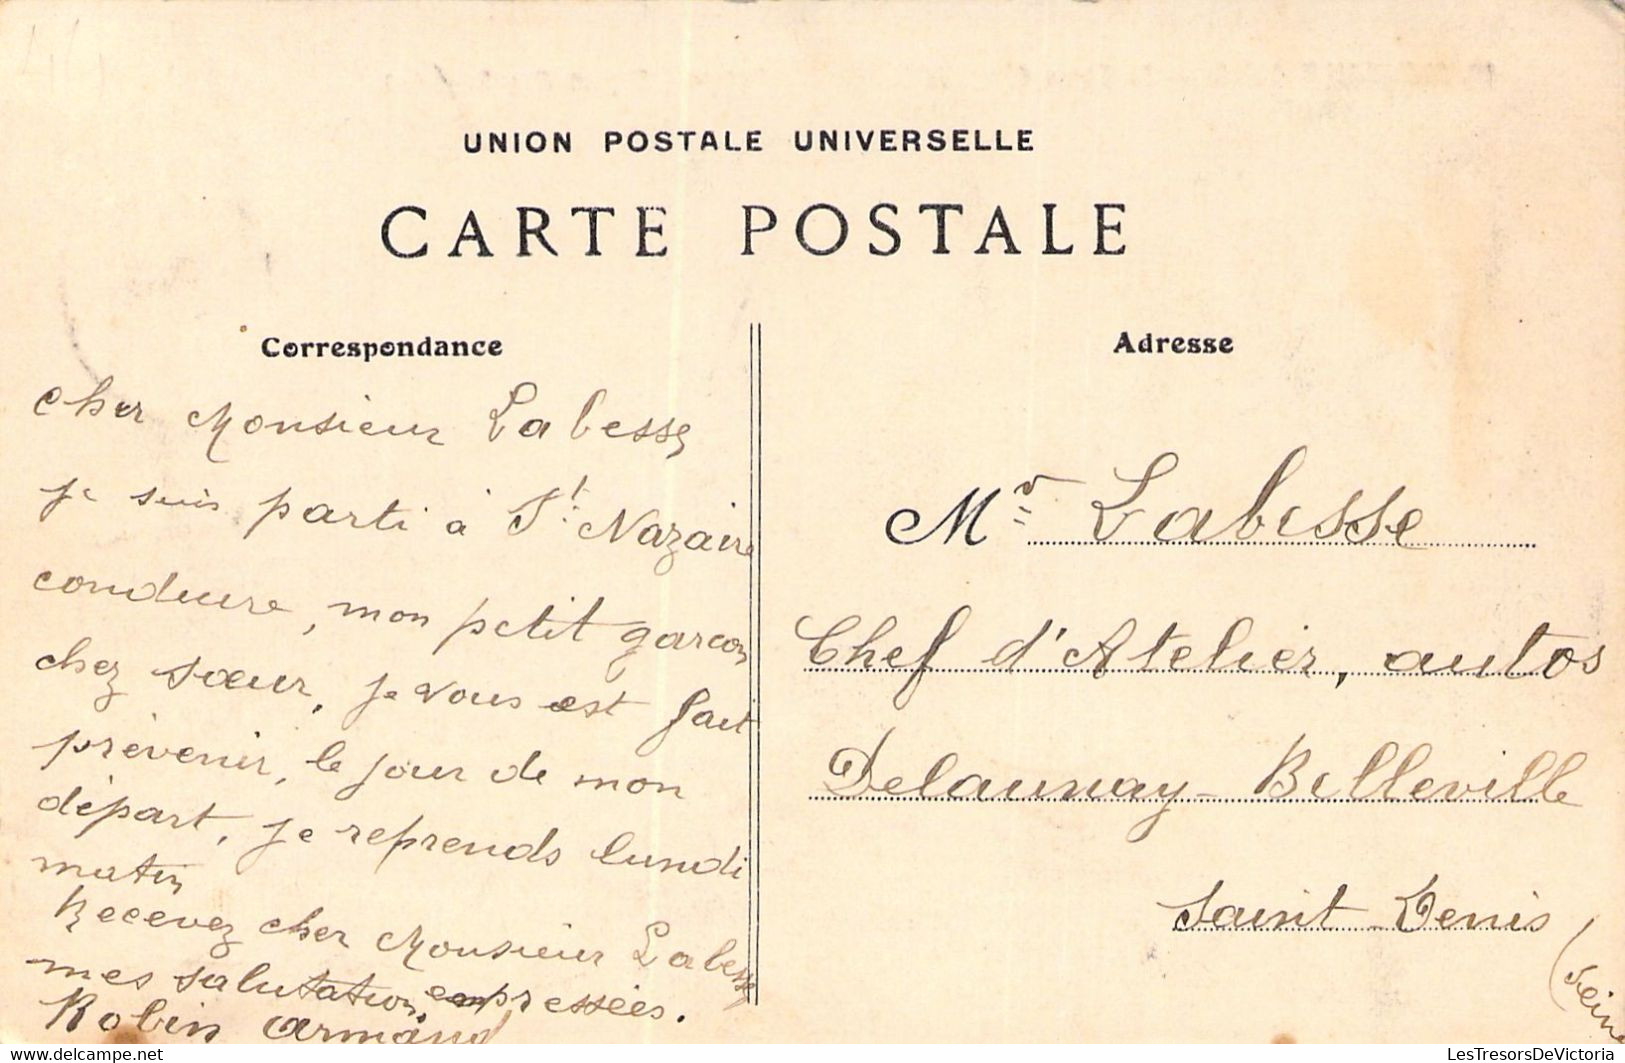 UNION POSTALE UNIVERSELLE
CARTE POSTALE
Correspondance
Cher Monsieur Labesse
je suis parti à St. Nazaire
conduire, mon petit garcon
chez sœur, je vous est fait
prévenir, le jour de mon
départ, je reprends lundi
matin
Recevez cher Monsieur Labesse
mes salutation, empressées.
Robin Armand
Adresse
Mr Labesse
Chef d'Atelier, autos
Delaunay-Belleville
Saint-Denis
(Seine
delcampe.net
LesTresorsDeVictoria